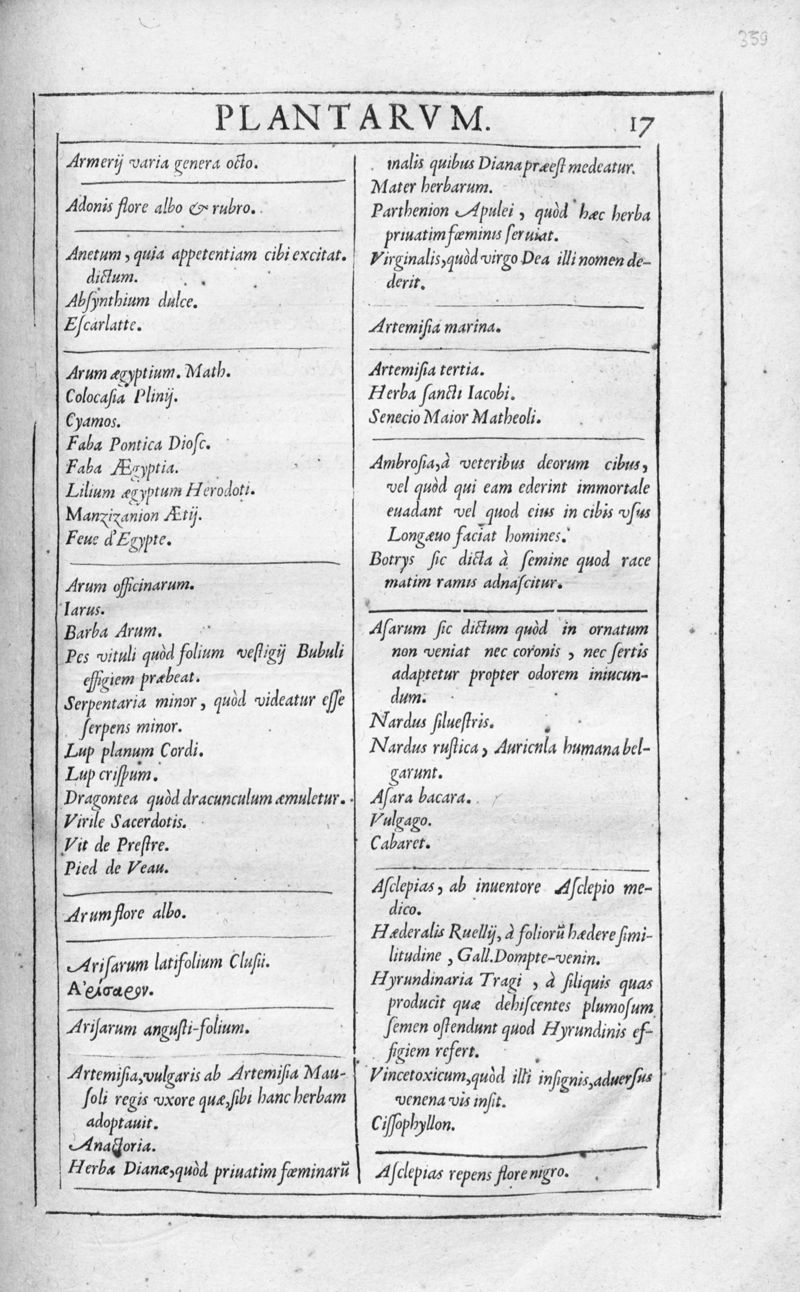 359
PLANTARVM. 17
Armerij varia genera octo.
Adonis flore albo & rubro.
Anetum, quia appetentiam cibi excitat.
dictum.
Abſynthium dulce.
Eſcarlatte.
Arum ægyptium. Math.
Colocaſia Plinij.
Cyamos.
Faba Pontica Dioſc.
Faba Ægyptia.
Lilium ægyptum Herodoti.
Manzizanion Ætij.
Feue d'Egypte.
Arum officinarum.
Iarus.
Barba Arum.
Pes vituli quòd folium veſtigij Bubuli
effigiem præbeat.
Serpentaria minor, quòd videatur eſſe
ſerpens minor.
Lup planum Cordi.
Lup criſpum.
Dragontea quòd dracunculum æmuletur.
Virile Sacerdotis.
Vit de Preſtre.
Pied de Veau.
Arum flore albo.
Ariſarum latifolium Cluſii.
Ἀρίσαρον.
Ariſarum anguſti-folium.
Artemiſia, vulgaris ab Artemiſia Mau-
ſoli regis vxore quæ, ſibi hanc herbam
adoptauit.
Anactoria.
Herba Dianæ, quòd priuatim fœminarū
malis quibus Diana præeſt medeatur.
Mater herbarum.
Parthenion Apulei, quòd hæc herba
priuatim fœminis ſeruiat.
Virginalis, quòd virgo Dea illi nomen de-
derit.
Artemiſia marina.
Artemiſia tertia.
Herba ſancti Iacobi.
Senecio Maior Matheoli.
Ambroſia, à veteribus deorum cibus,
vel quòd qui eam ederint immortale
euadant vel quod eius in cibis vſus
Longæuo faciat homines.
Botrys ſic dicta à ſemine quod race
matim ramis adnaſcitur.
Aſarum ſic dictum quòd in ornatum
non veniat nec coronis, nec ſertis
adaptetur propter odorem iniucun-
dum.
Nardus ſilueſtris.
Nardus ruſtica, Auricula humana bel-
garunt.
Aſara bacara.
Vulgago.
Cabaret.
Aſclepias, ab inuentore Aſclepio me-
dico.
Hæderalis Ruellij, à foliorū hædere ſimi-
litudine, Gall. Dompte-venin.
Hyrundinaria Tragi, à ſiliquis quas
producit quæ dehiſcentes plumoſum
ſemen oſtendunt quod Hyrundinis ef-
figiem refert.
Vincetoxicum, quòd illi inſignis, aduerſus
venena vis inſit.
Ciſſophyllon.
Aſclepias repens flore nigro.